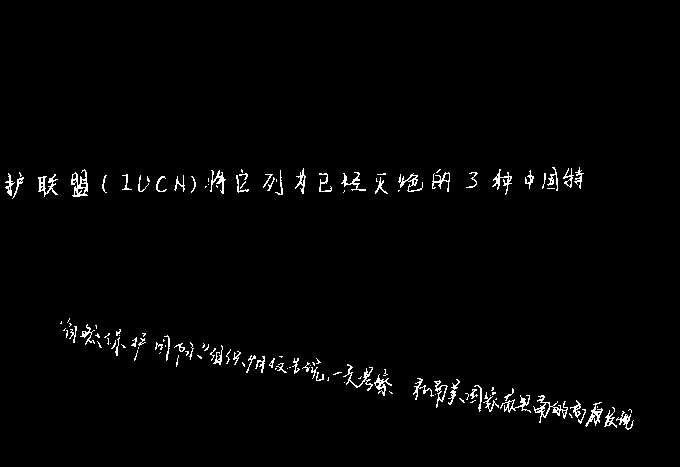 护联盟(IUCN)将它列为已经灭绝的3种中国特
“自然保护国际”组织6月报告说,一支考察 和南美国家苏里南的高原发现